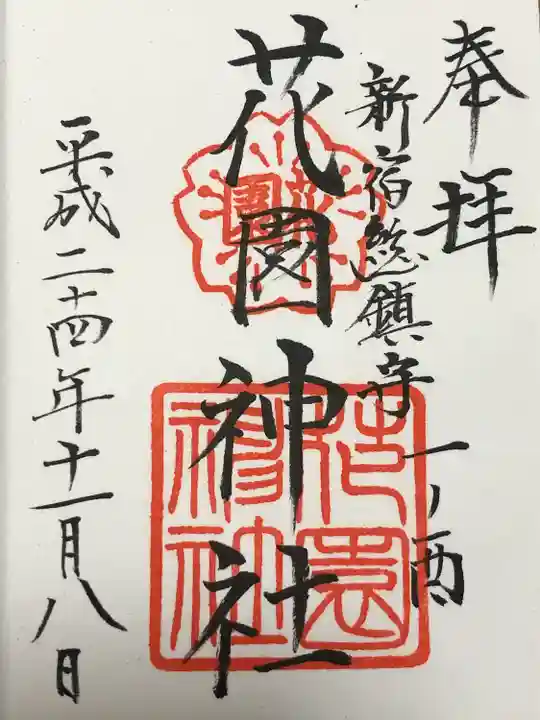 奉拝
新宿総鎮守
一ノ酉
花園神社
花園神社
平成二十四年十一月八日